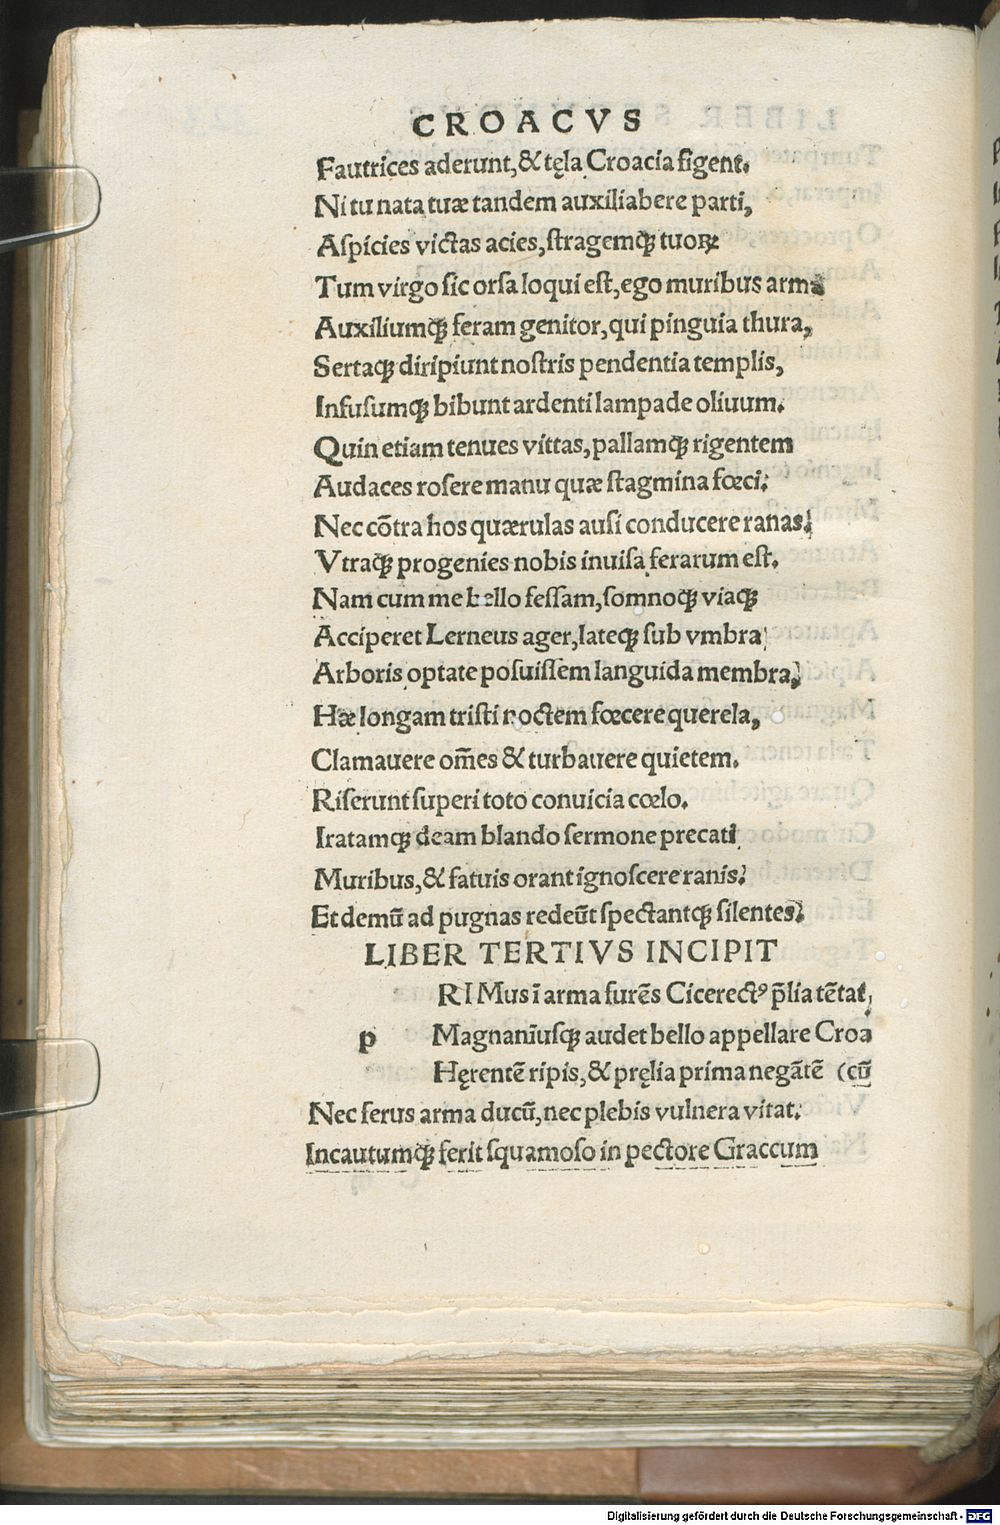 CROACVS
Fautrices aderunt, & tęla Croacia figent.
Ni tu nata tuæ tandem auxiliabere parti,
Aſpicies victas acies, ſtragemqꝫ tuoꝝ
Tum virgo ſic orſa loqui eſt, ego muribus arma
Auxiliumqꝫ feram genitor, qui pinguia thura,
Sertaqꝫ diripiunt noſtris pendentia templis,
Infuſumqꝫ bibunt ardenti lampade oliuum.
Quin etiam tenues vittas, pallamqꝫ rigentem
Audaces roſere manu quæ ſtagmina fœci.
Nec cõtra hos quærulas auſi conducere ranas.
Vtraqꝫ progenies nobis inuiſa ferarum eſt.
Nam cum me bello feſſam, ſomnoqꝫ viaqꝫ
Acciperet Lerneus ager, lateqꝫ ſub vmbra
Arboris optate poſuiſſem languida membra,
Hæ longam triſti noctem fœcere querela,
Clamauere om̃es & turbauere quietem.
Riſerunt ſuperi toto conuicia cœlo.
Iratamqꝫ deam blando ſermone precati
Muribus, & fatuis orant ignoſcere ranis.
Et demũ ad pugnas redeũt ſpectantqꝫ ſilentes.
LIBER TERTIVS INCIPIT
RIMus ĩ arma furẽs Cicerectꝰ p̃lia tẽtat,
p Magnanĩusqꝫ audet bello appellare Croa
Hęrentẽ ripis, & pręlia prima negãtẽ (cũ
Nec ferus arma ducũ, nec plebis vulnera vitat.
Incautumqꝫ ferit ſquamoſo in pectore Graccum
Digitalisierung gefördert durch die Deutsche Forschungsgemeinschaft - DFG